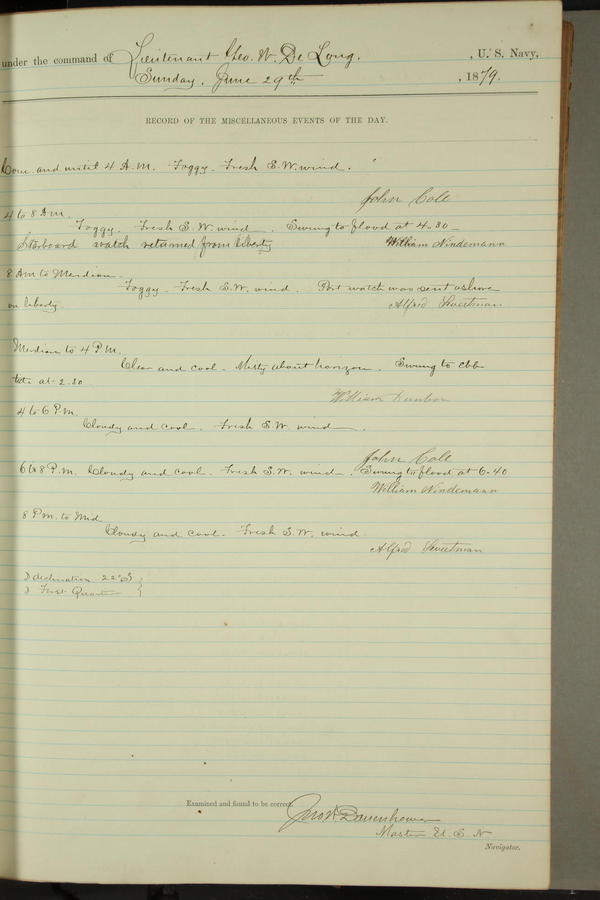 under the command of Lieutenant Geo. W. De Long. , U. S. Navy,
Sunday, June 29th , 1879.
RECORD OF THE MISCELLANEOUS EVENTS OF THE DAY.
Com. and until 4 A.M. Foggy. Fresh S.W. wind.
John Cole
4 to 8 A.M.
Foggy. Fresh S.W. wind. Swung to flood at 4.30
Starboard watch returned from liberty
William Nindemann
8 A.M to Meridian
Foggy. Fresh S.W. wind. Port watch was sent ashore
on liberty.
Alfred Sweetman
Meridian to 4 P.M.
Clear and cool. Misty about horizon. Swung to ebb
tide at 2.30
William Dunbar
4 to 6 P.M.
Cloudy and cool. Fresh S.W. wind.
John Cole
6 to 8 P.M. Cloudy and cool. Fresh S.W. wind. Swung to flood at 6.40
William Nindemann
8 P.M. to Mid
Cloudy and cool. Fresh S.W. wind
Alfred Sweetman
declination 22° S
First Quarter
Examined and found to be correct.
Jno W Danenhower
Master U.S.N
Navigator.